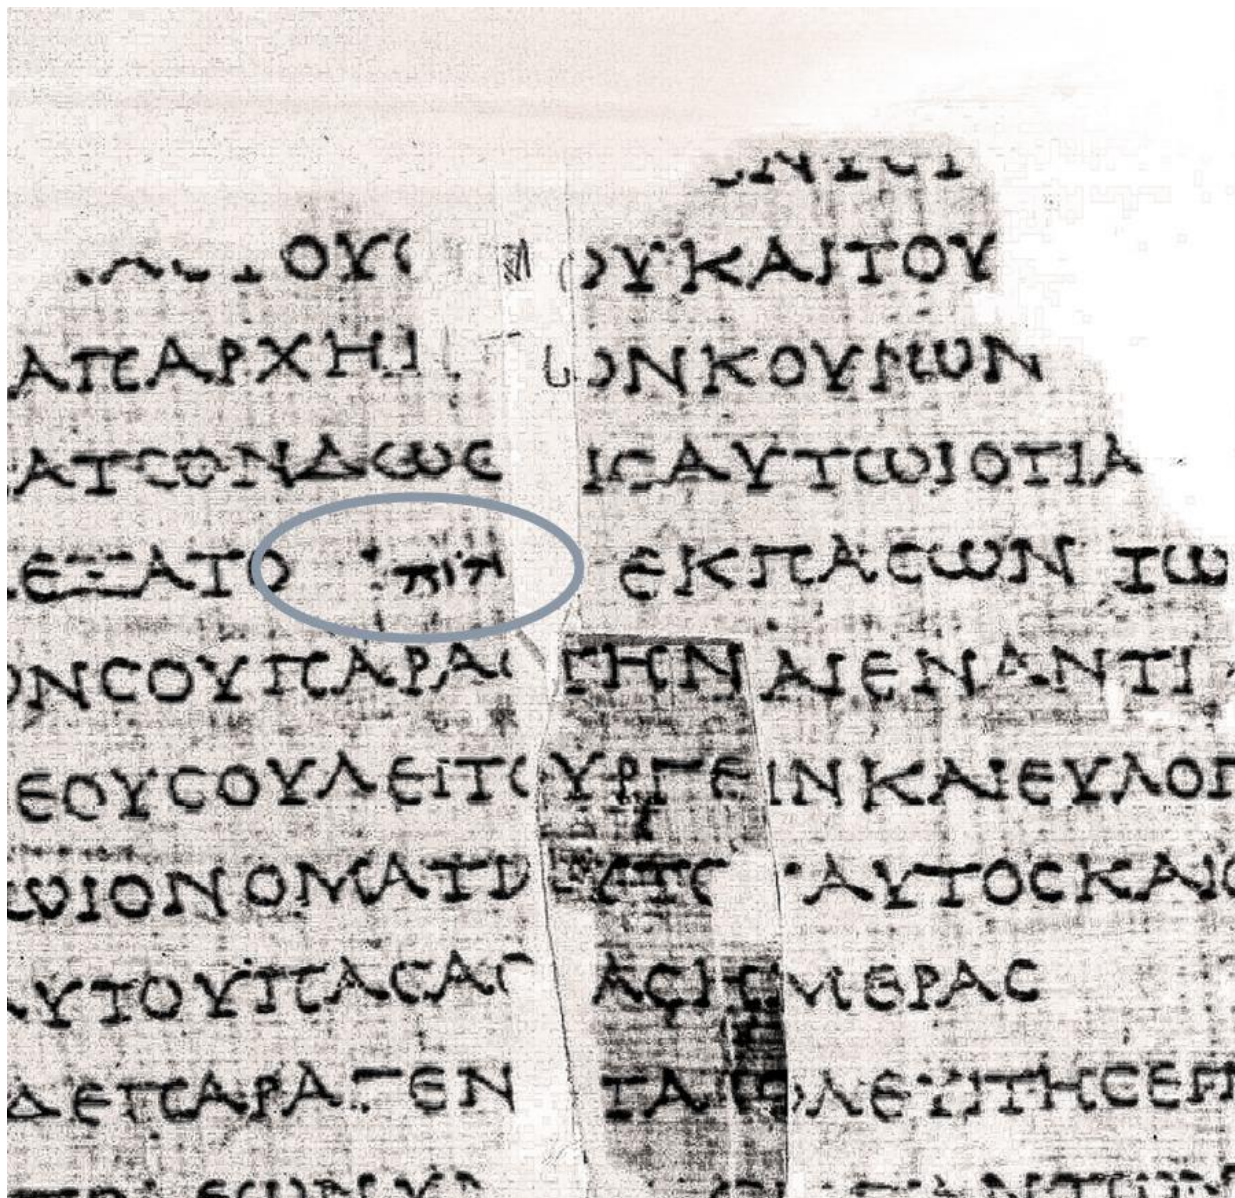 ΟΥC ΟΥΚΑΙΤΟΥ
ΑΠΑΡΧΗ ΩΝΚΟΥΡΩΝ
ΑΤΩΝΔΩCΕ ΙCΑΥΤΩΙΟΤΙΑ
ΕΞΑΤΟ יהוה ΕΚΠΑCΩΝ ΤΩ
ΟΝCΟΥΠΑΡΑC ΤΗΝΑΙΕΝΑΝΤΙ
ΕΟΥCΟΥΛΕΙΤΟΥΡΓΕΙΝΚΑΙΕΥΛΟΓ
ΩΙΟΝΟΜΑΤΙ ΥΤΟ ΑΥΤΟCΚΑΙΟ
ΑΥΤΟΥΠΑCΑC ΑCΗΜΕΡΑC
ΔΕΠΑΡΑΓΕΝ ΤΑΙΟΛΕΥΙΤΗCΕΠ